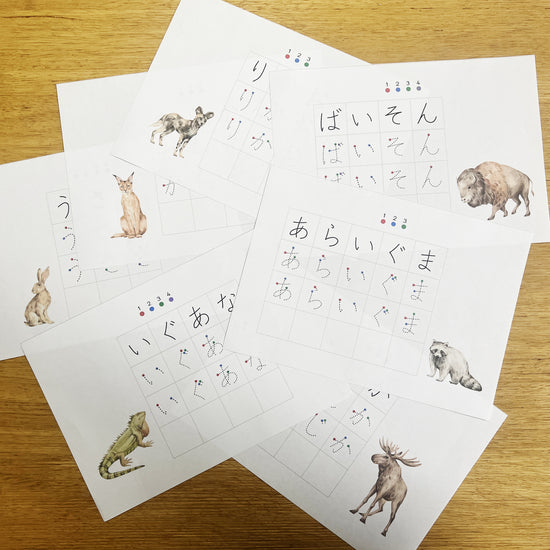 1 2 3
り
りか
りか
1 2 3 4
ばいそん
ばいそん
ばいそん
か
う
う
う
1 2 3
あらいぐま
あらいぐま
あらいぐま
1 2 3 4
いぐあな
いぐあ
いぐあな
か
じか